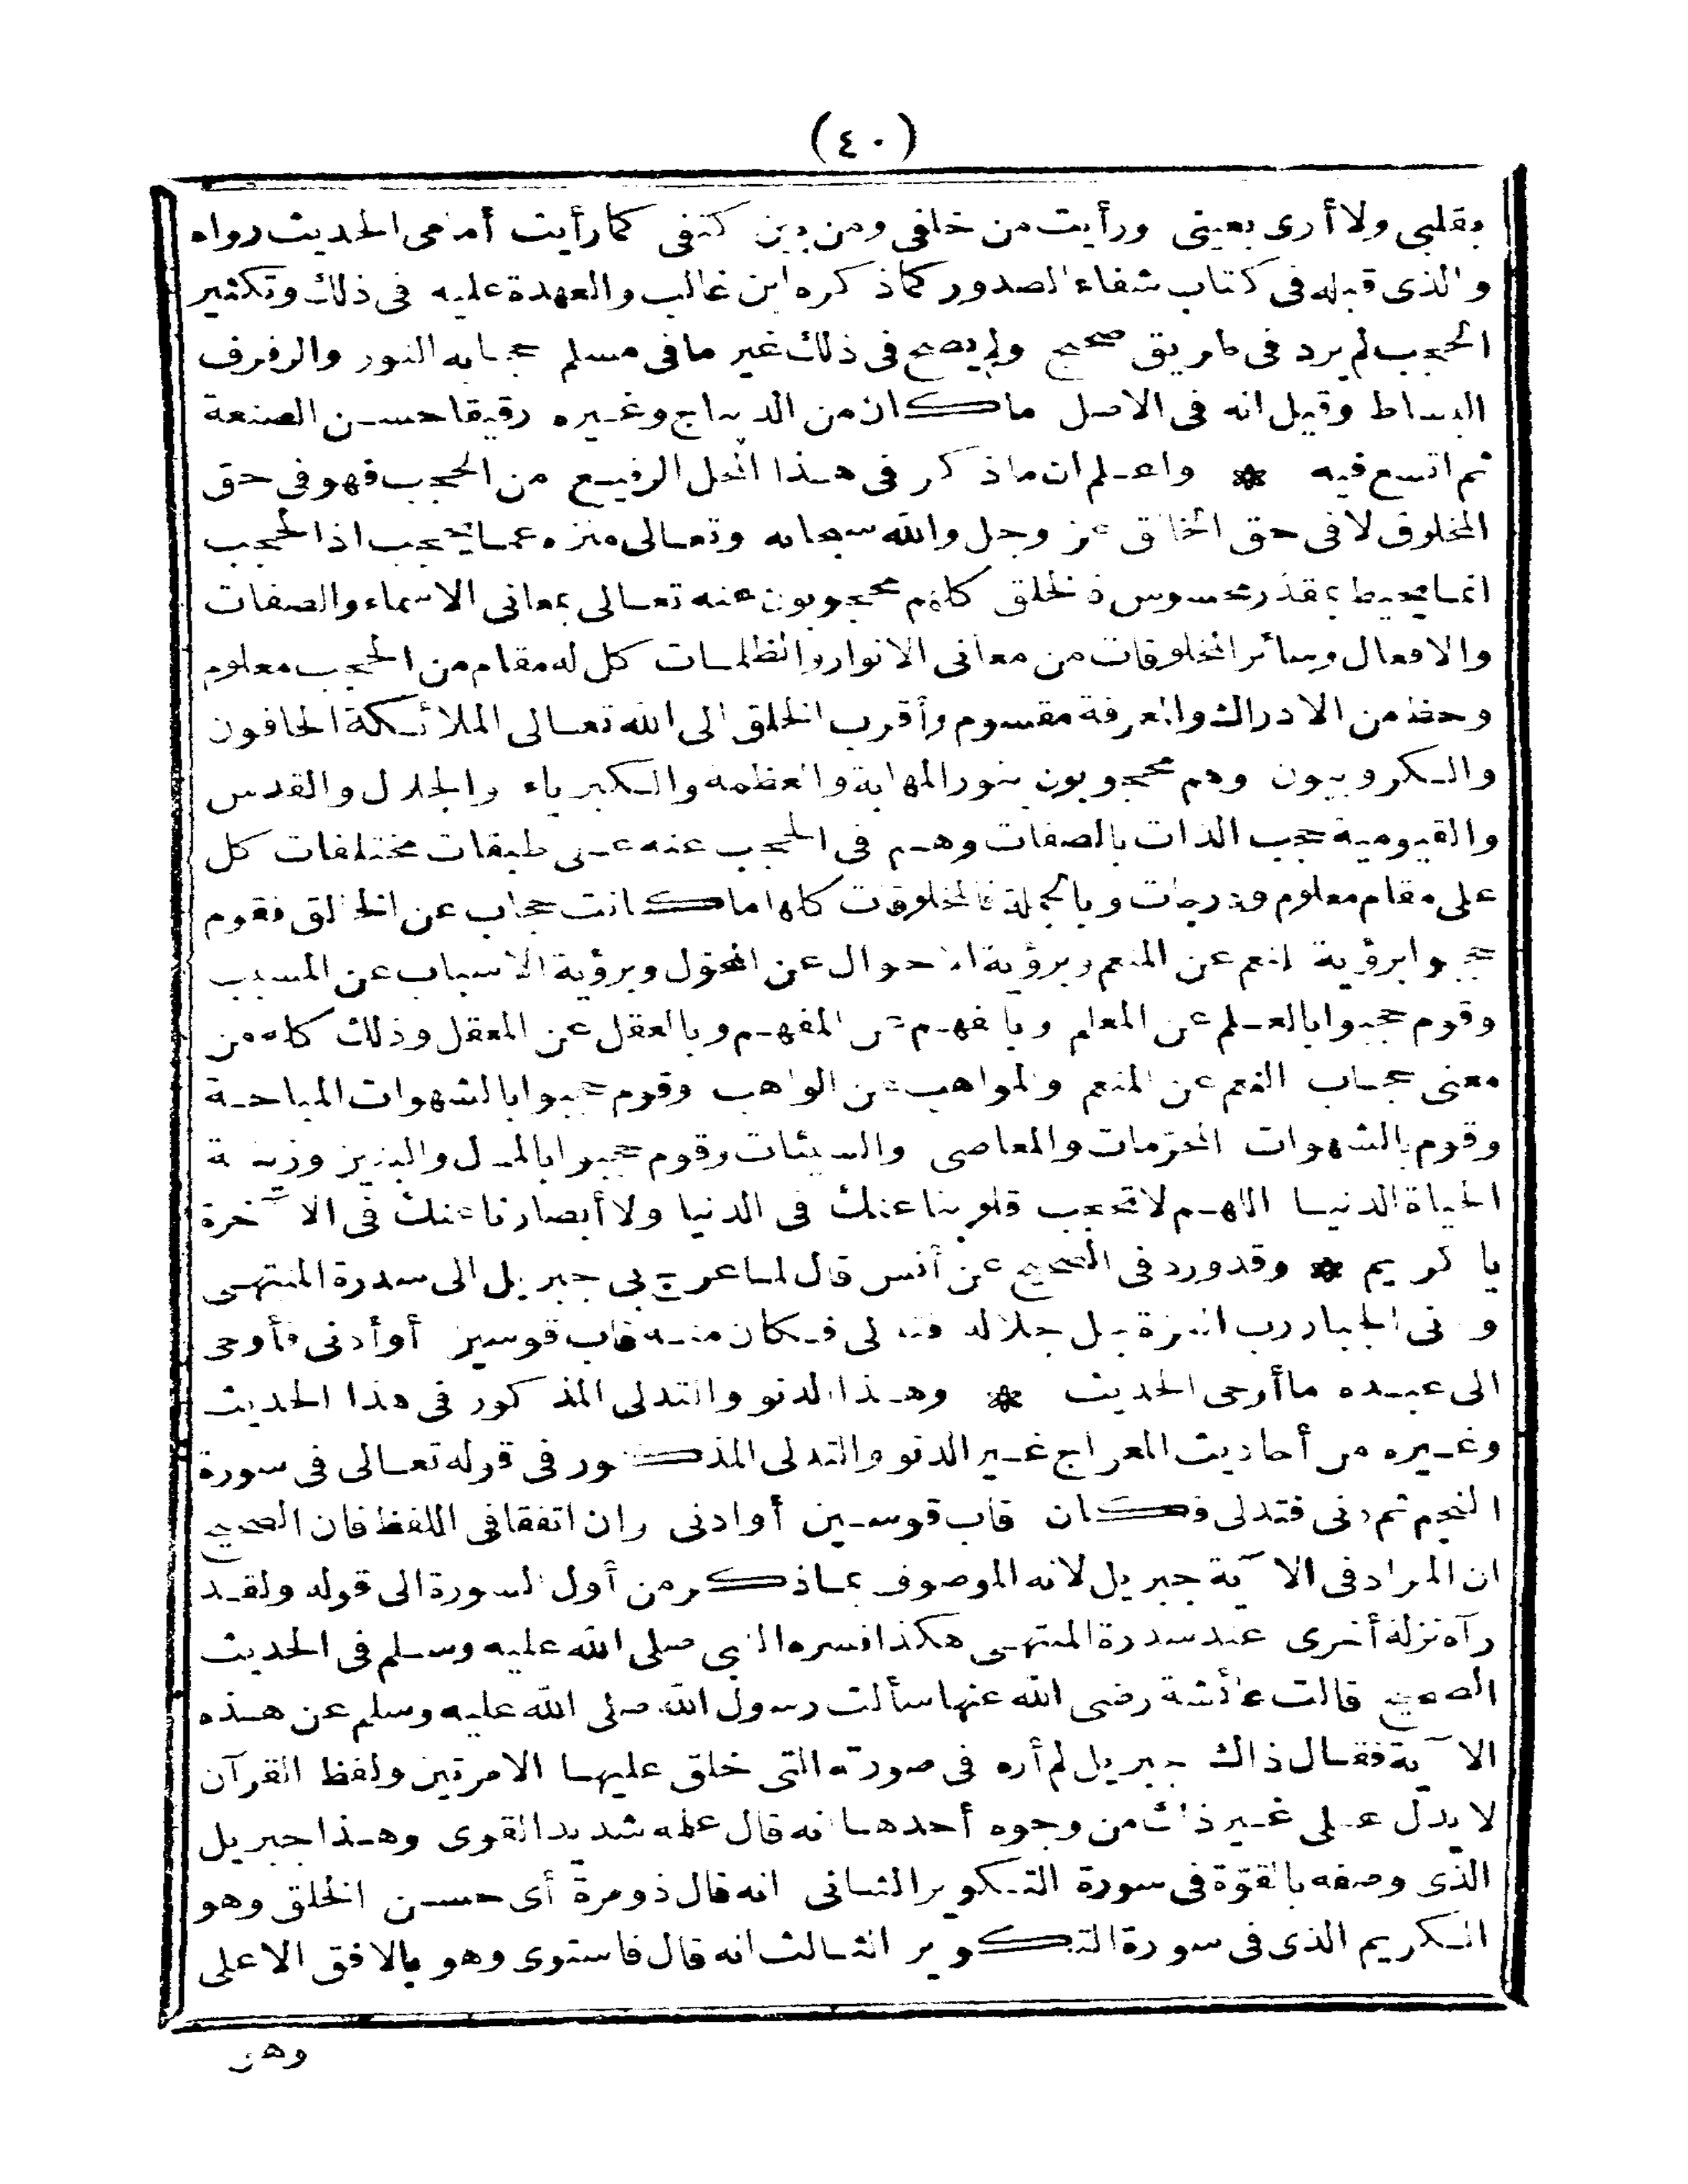 (٤٠)
بقلبى ولا أرى بعينى ورأيت من خلفى ومن بين كتفى كما رأيت أمامى الحديث رواه
والذى قبله فى كتاب شفاء الصدور كما ذكره ابن غالب والعهدة عليه فى ذلك وتكثير
الحجب لم يرد فى طريق صحيح ولم يصح فى ذلك غير ما فى مسلم حجابه النور والرفرف
البساط وقيل انه فى الاصل ما كان من الديباج وغيره رقيقا حسن الصنعة
ثم اتسع فيه * واعلم ان ما ذكر فى هذا المحل الرفيع من الحجب فهو فى حق
المخلوق لا فى حق الخالق عز وجل والله سبحانه وتعالى منزه عما يحجب اذ الحجب
انما يحيط بمقدر محسوس فالخلق كلهم محجوبون عنه تعالى بمعانى الاسماء والصفات
والافعال وسائر المخلوقات من معانى الانوار والظلمات كل له مقام من الحجب معلوم
وحظ من الادراك والمعرفة مقسوم وأقرب الخلق الى الله تعالى الملائكة الحافون
والكروبيون وهم محجوبون بنور المهابة والعظمة والكبرياء والجلال والقدس
والقيومية حجب الذات بالصفات وهم فى الحجب عنه على طبقات مختلفات كل
على مقام معلوم ودرجات وبالجملة فالمخلوقات كلها ما كانت حجاب عن الخالق فقوم
حجبوا برؤية النعم عن المنعم وبرؤية الاحوال عن المحوّل وبرؤية الاسباب عن المسبب
وقوم حجبوا بالعلم عن المعلم وبالفهم عن المفهم وبالعقل عن المعقل وذلك كله من
معنى حجاب النعم عن المنعم والمواهب عن الواهب وقوم حجبوا بالشهوات المباحة
وقوم بالشهوات المحرّمات والمعاصى والسيئات وقوم حجبوا بالمال والبنين وزينة
الحياة الدنيا اللهم لا تحجب قلوبنا عنك فى الدنيا ولا أبصارنا عنك فى الآخرة
يا كريم * وقد ورد فى الصحيح عن أنس قال لما عرج بى جبريل الى سدرة المنتهى
ودنى الجبار رب العزة جل جلاله فتدلى فكان منه قاب قوسين أو أدنى فأوحى
الى عبده ما أوحى الحديث * وهذا الدنو والتدلى المذكور فى هذا الحديث
وغيره من أحاديث المعراج غير الدنو والتدلى المذكور فى قوله تعالى فى سورة
النجم ثم دنى فتدلى فكان قاب قوسين أو ادنى وان اتفقا فى اللفظ فان الصحيح
ان المراد فى الآية جبريل لانه الموصوف بما ذكر من أول السورة الى قوله ولقد
رآه نزلة أخرى عند سدرة المنتهى هكذا فسره النبى صلى الله عليه وسلم فى الحديث
الصحيح قالت عائشة رضى الله عنها سألت رسول الله صلى الله عليه وسلم عن هذه
الآية فقال ذاك جبريل لم أره فى صورته التى خلق عليها الا مرتين ولفظ القرآن
لا يدل على غير ذلك من وجوه أحدها انه قال علمه شديد القوى وهذا جبريل
الذى وصفه بالقوّة فى سورة التكوير الثانى انه قال ذو مرة أى حسن الخلق وهو
الكريم الذى فى سورة التكوير الثالث انه قال فاستوى وهو بالافق الاعلى
وهو